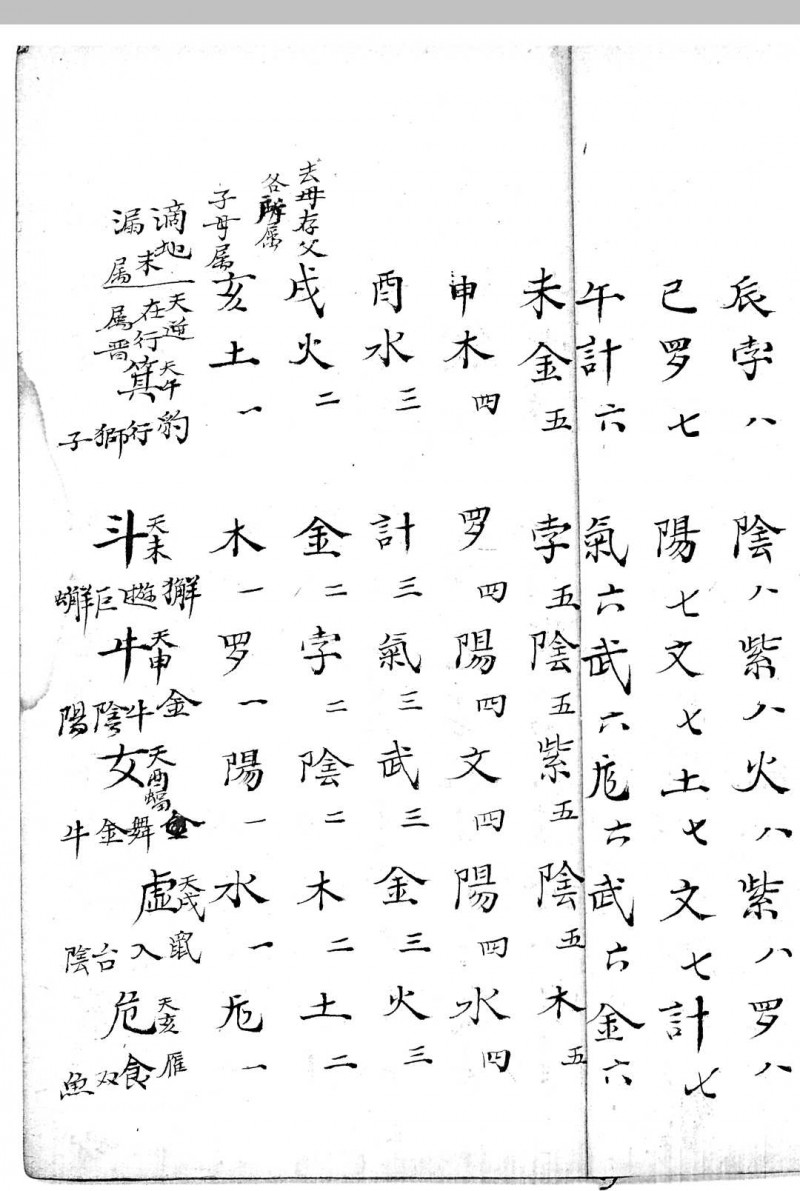 辰孛八 陰八紫八火八紫八罗八
巳罗七 陽七文七土七文七計七
午計六 氣六武六卮六武六金六
未金五 孛五陰五紫五陰五木五
申木四 罗四陽四文四陽四水四
酉水三 計三氣三武三金三火三
去毋存父
各所属
戌火二 金二孛二陰二木二土二
子母属
亥土一 木一罗一陽一水一卮一
滴地未
漏属
天逆
在行
属晋
箕天午
豹行獅子
斗天未
獬遊巨
牛天申
金牛陰陽
女天酉
金舞金牛
虛天戌
鼠入台陰
危天亥
雁食双魚